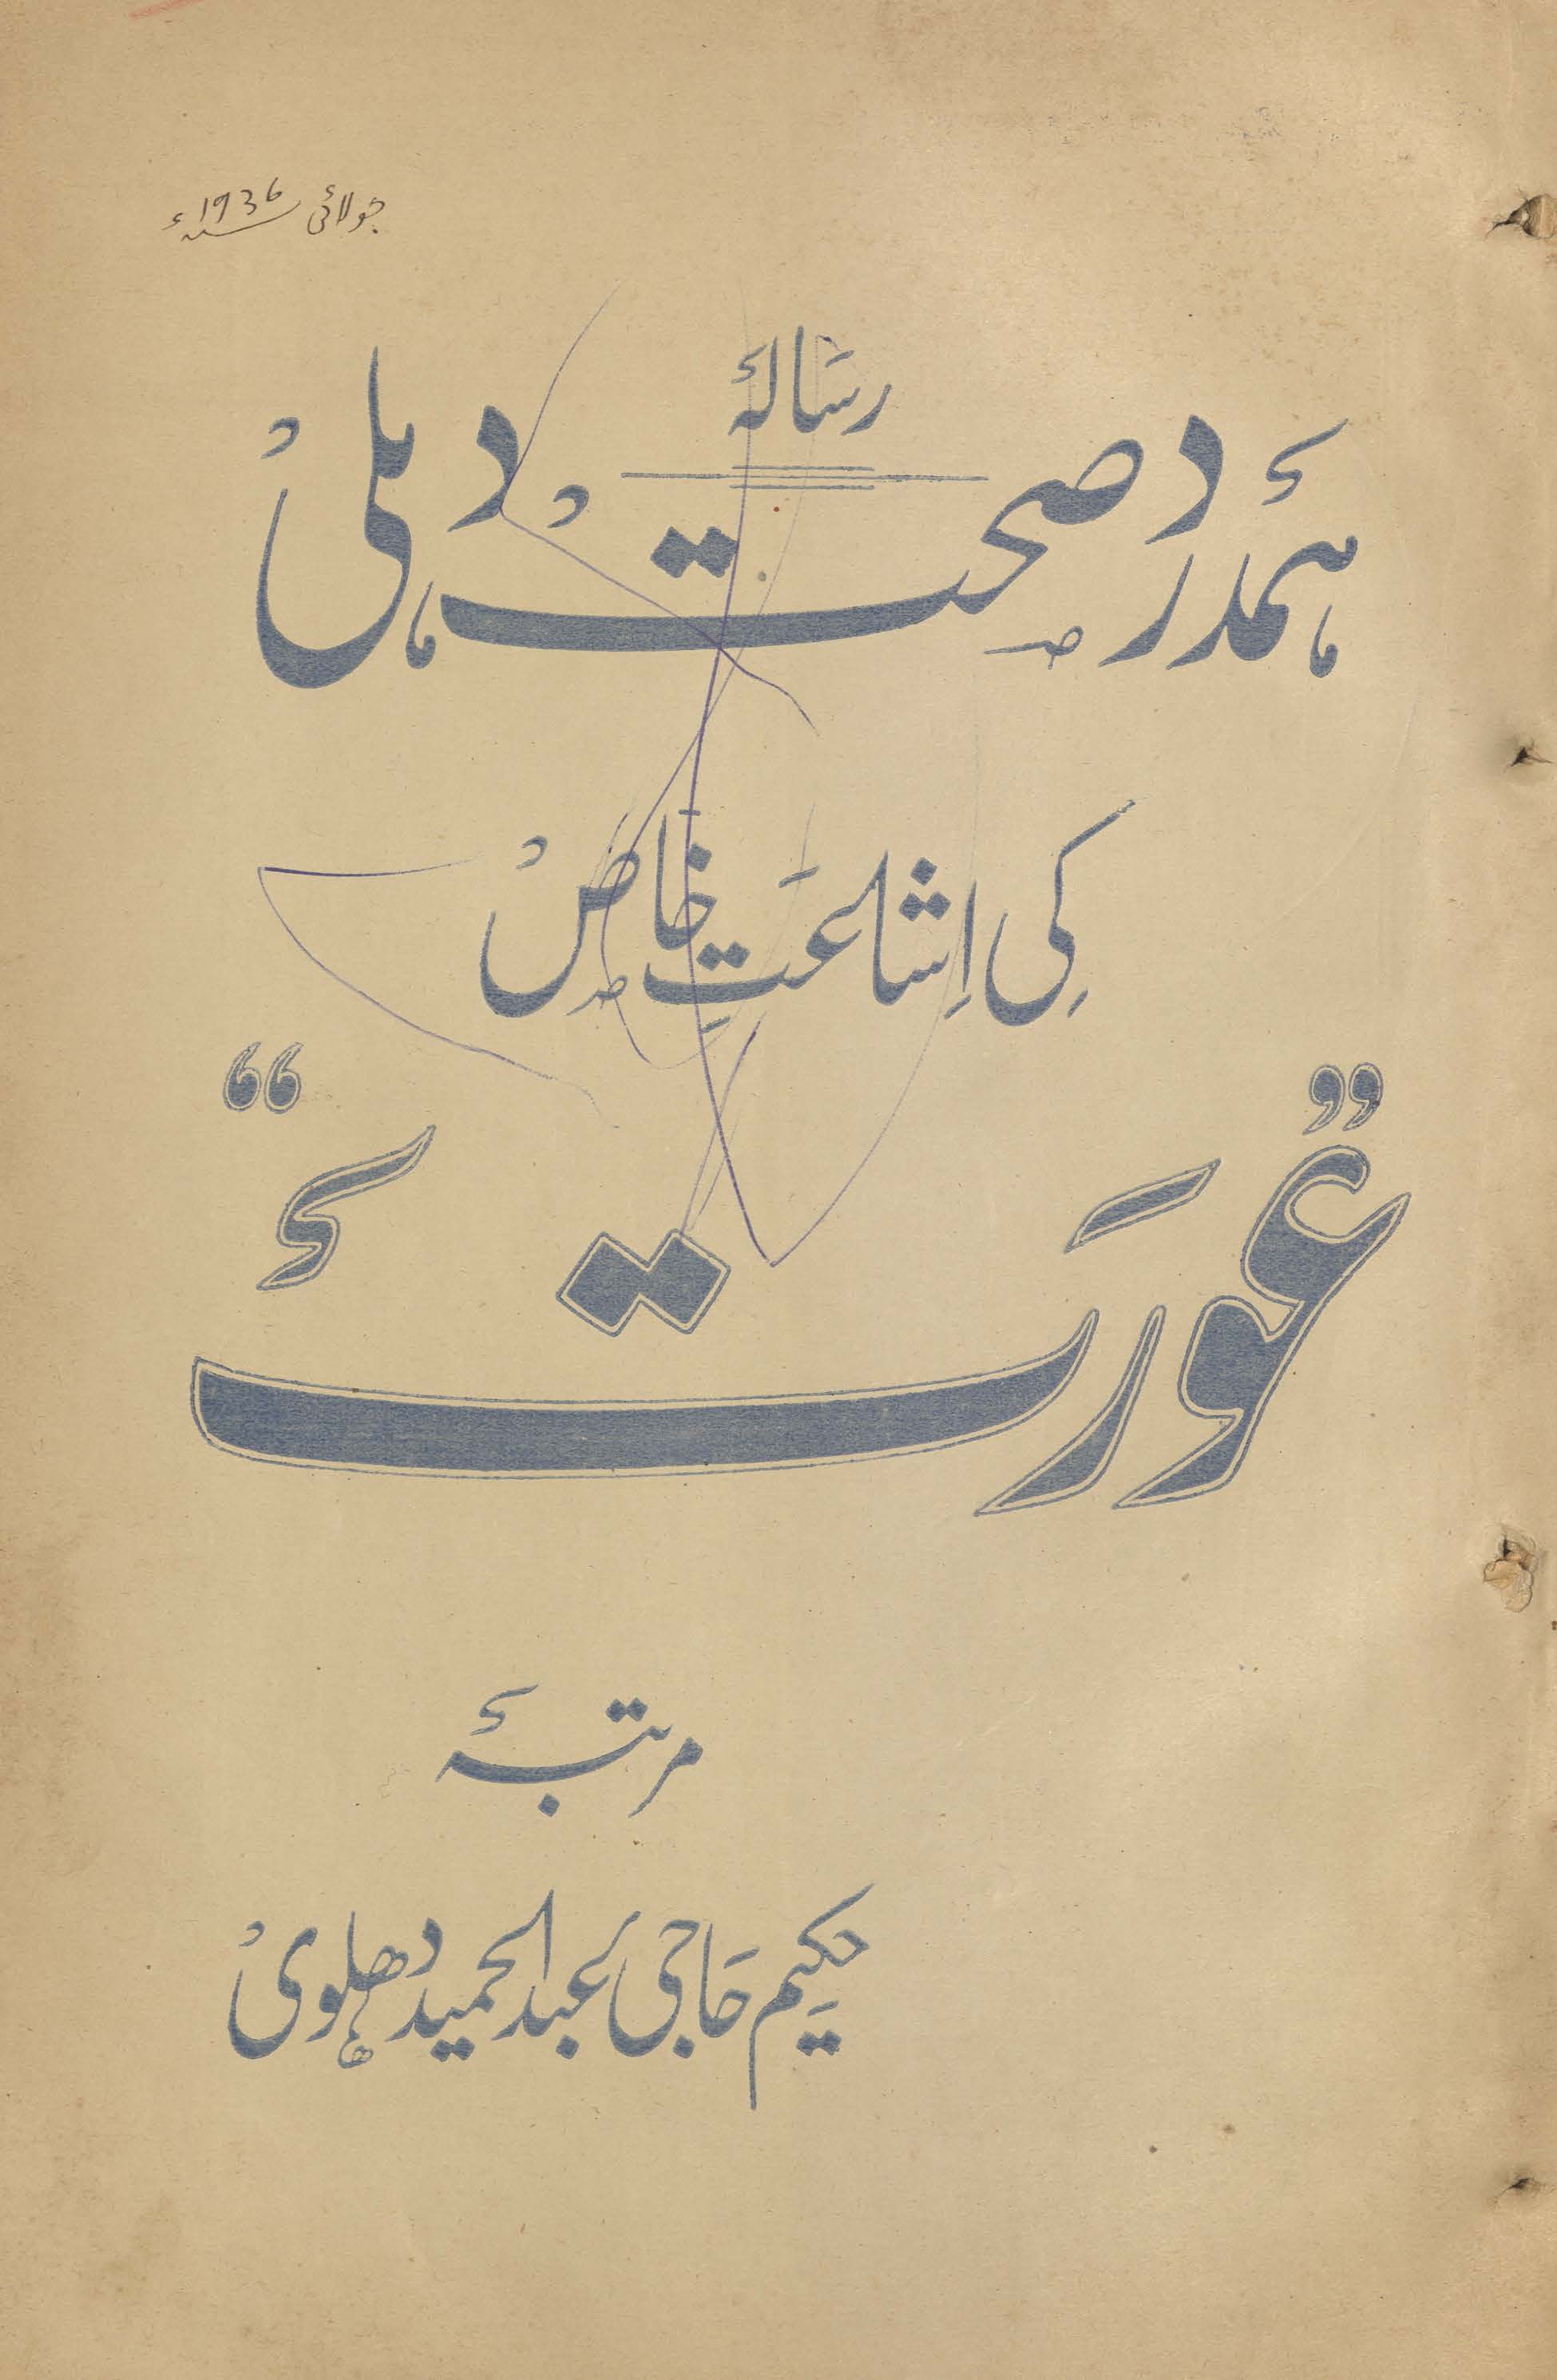 جولائی 1936ء
رسالۂ
ہمدرد صحت دہلی
کی اِشاعتِ خاص
”عَورت“
مرتبۂ
حکیم حاجی عبدالحمید دھلوی